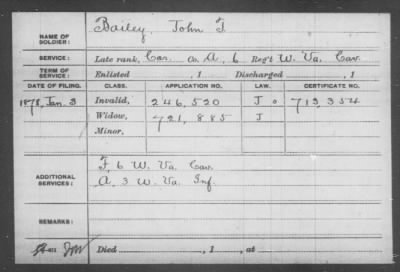 NAME OF SOLDIER: Bailey, John T.
SERVICE: Late rank, Cor. Co. A, 6 Reg't W. Va. Cav.
TERM OF SERVICE: Enlisted , 1 Discharged , 1
DATE OF FILING. CLASS. APPLICATION NO. LAW. CERTIFICATE NO.
1878, Jan. 3 Invalid, 246,520 J 713,354
Widow, 721,885 J
Minor,
ADDITIONAL SERVICES: F, 6 W. Va. Cav.
A, 3 W. Va. Inf.
REMARKS:
Died , 1 , at